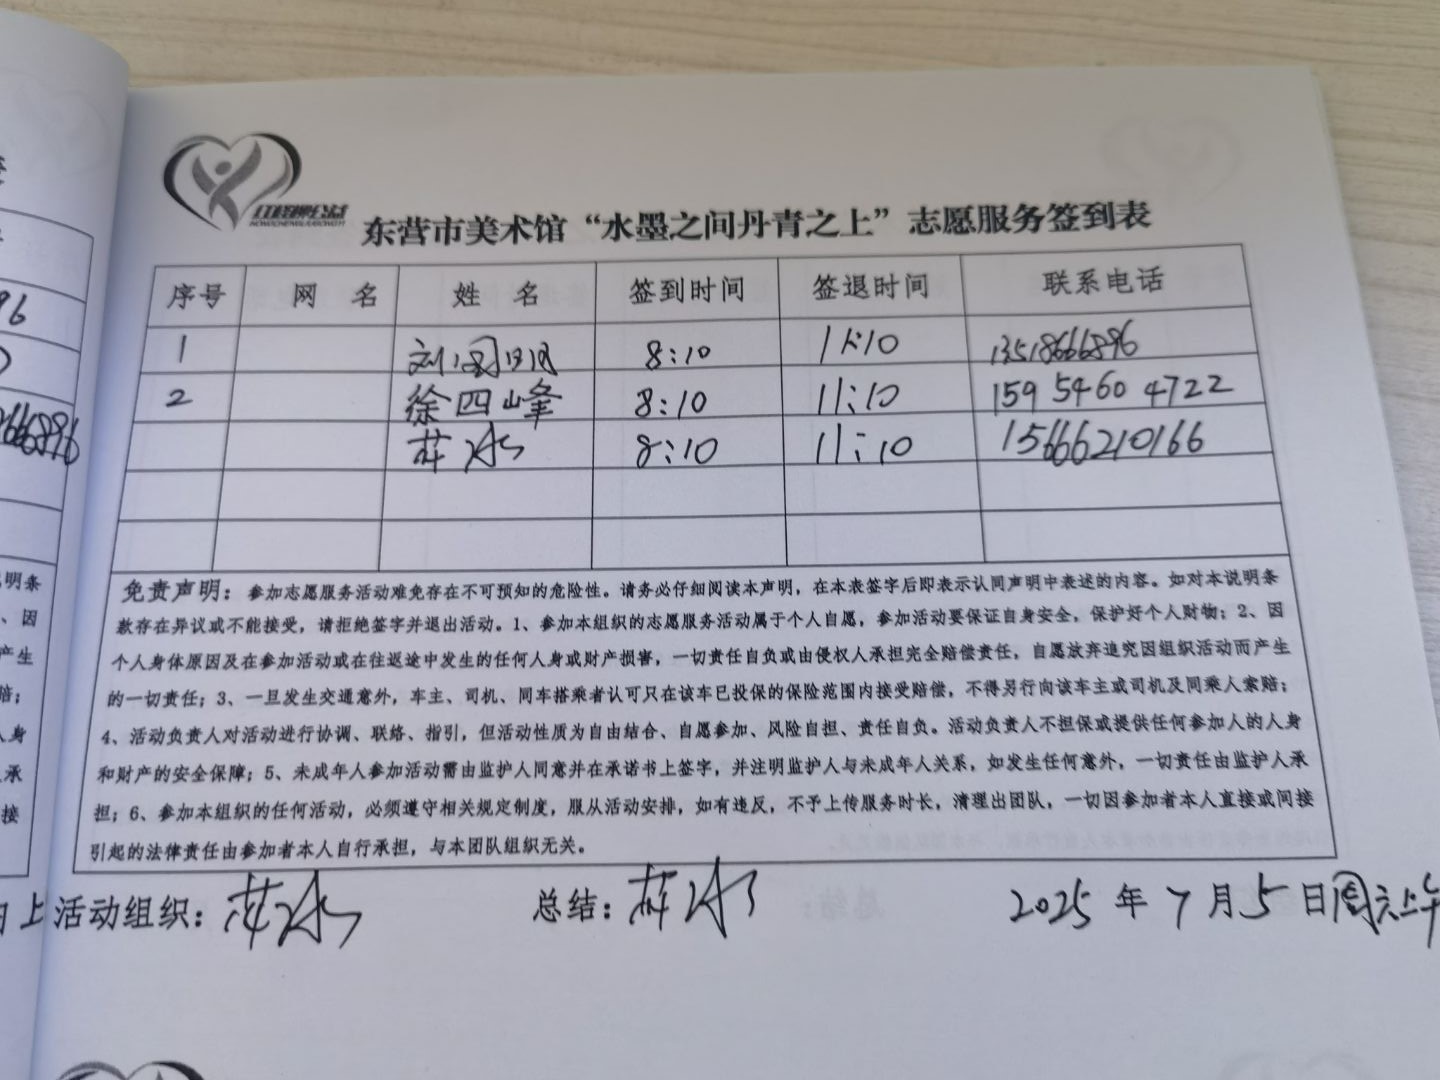 东营市美术馆“水墨之间丹青之上”志愿服务签到表
序号 网 名 姓 名 签到时间 签退时间 联系电话
1 8:10 13518666896
2 徐四峰 8:10 11:10 159 5460 4722
薛冰 8:10 11:10 15666210166
免责声明：参加志愿服务活动难免存在不可预知的危险性。请务必仔细阅读本声明，在本表签字后即表示认同声明中表述的内容。如对本说明条
款存在异议或不能接受，请拒绝签字并退出活动。1、参加本组织的志愿服务活动属于个人自愿，参加活动要保证自身安全，保护好个人财物；2、因
个人身体原因及在参加活动或在往返途中发生的任何人身或财产损害，一切责任自负或由侵权人承担完全赔偿责任，自愿放弃追究因组织活动而产生
的一切责任；3、一旦发生交通意外，车主、司机、同车搭乘者认可只在该车已投保的保险范围内接受赔偿，不得另行向该车主或司机及同乘人索赔；
4、活动负责人对活动进行协调、联络、指引，但活动性质为自由结合、自愿参加、风险自担、责任自负。活动负责人不担保或提供任何参加人的人身
和财产的安全保障；5、未成年人参加活动需由监护人同意并在承诺书上签字，并注明监护人与未成年人关系，如发生任何意外，一切责任由监护人承
担；6、参加本组织的任何活动，必须遵守相关规定制度，服从活动安排，如有违反，不予上传服务时长，清理出团队，一切因参加者本人直接或间接
引起的法律责任由参加者本人自行承担，与本团队组织无关。
活动组织：薛冰 总结：薛冰 2025年7月5日周六上午